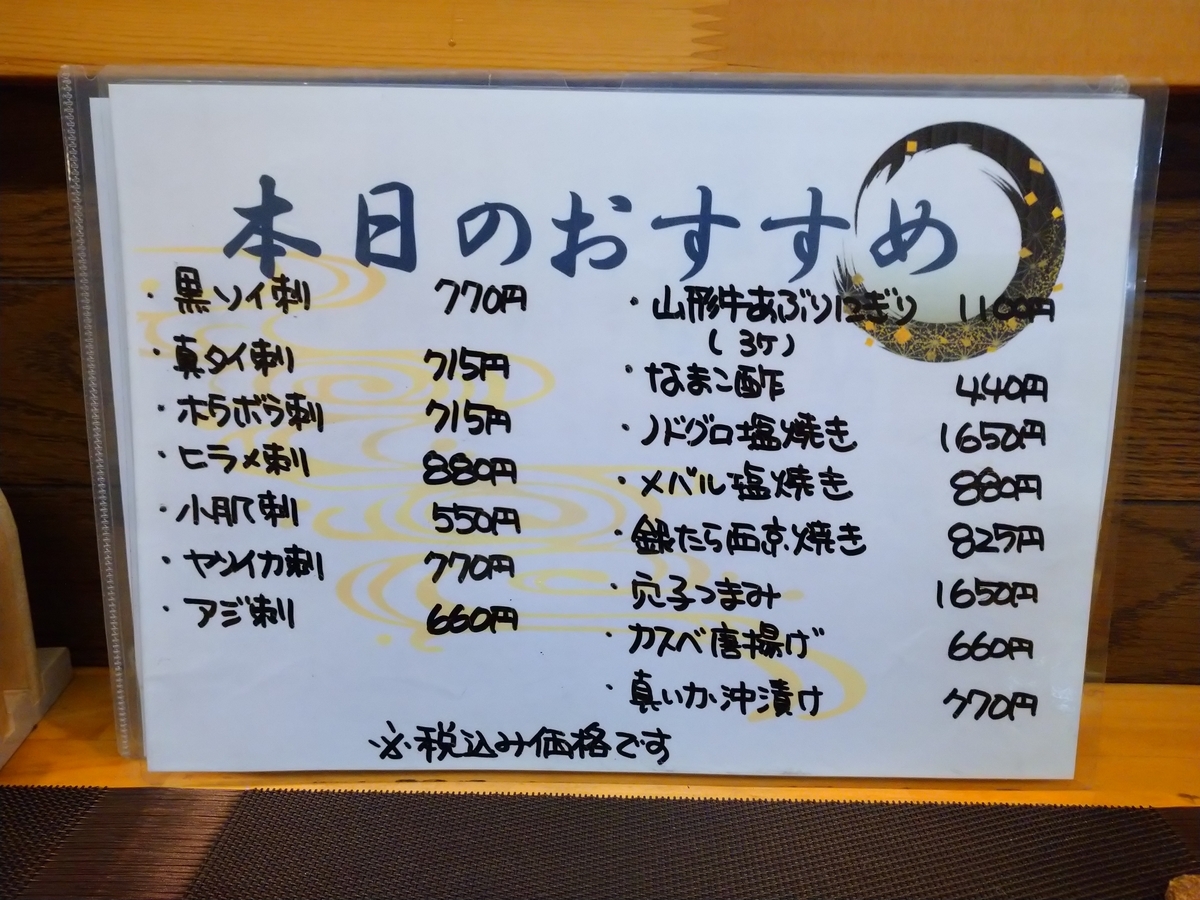 本日のおすすめ
・黒ソイ刺 770円
・真タイ刺 715円
・ホウボウ刺 715円
・ヒラメ刺 880円
・小肌刺 550円
・ヤリイカ刺 770円
・アジ刺 660円
・山形牛あぶりにぎり 1100円
(3ケ)
・なまこ酢 440円
・ノドグロ塩焼き 1650円
・メバル塩焼き 880円
・銀たら西京焼き 825円
・穴子つまみ 1650円
・カスベ唐揚げ 660円
・真いか沖漬け 770円
※税込み価格です